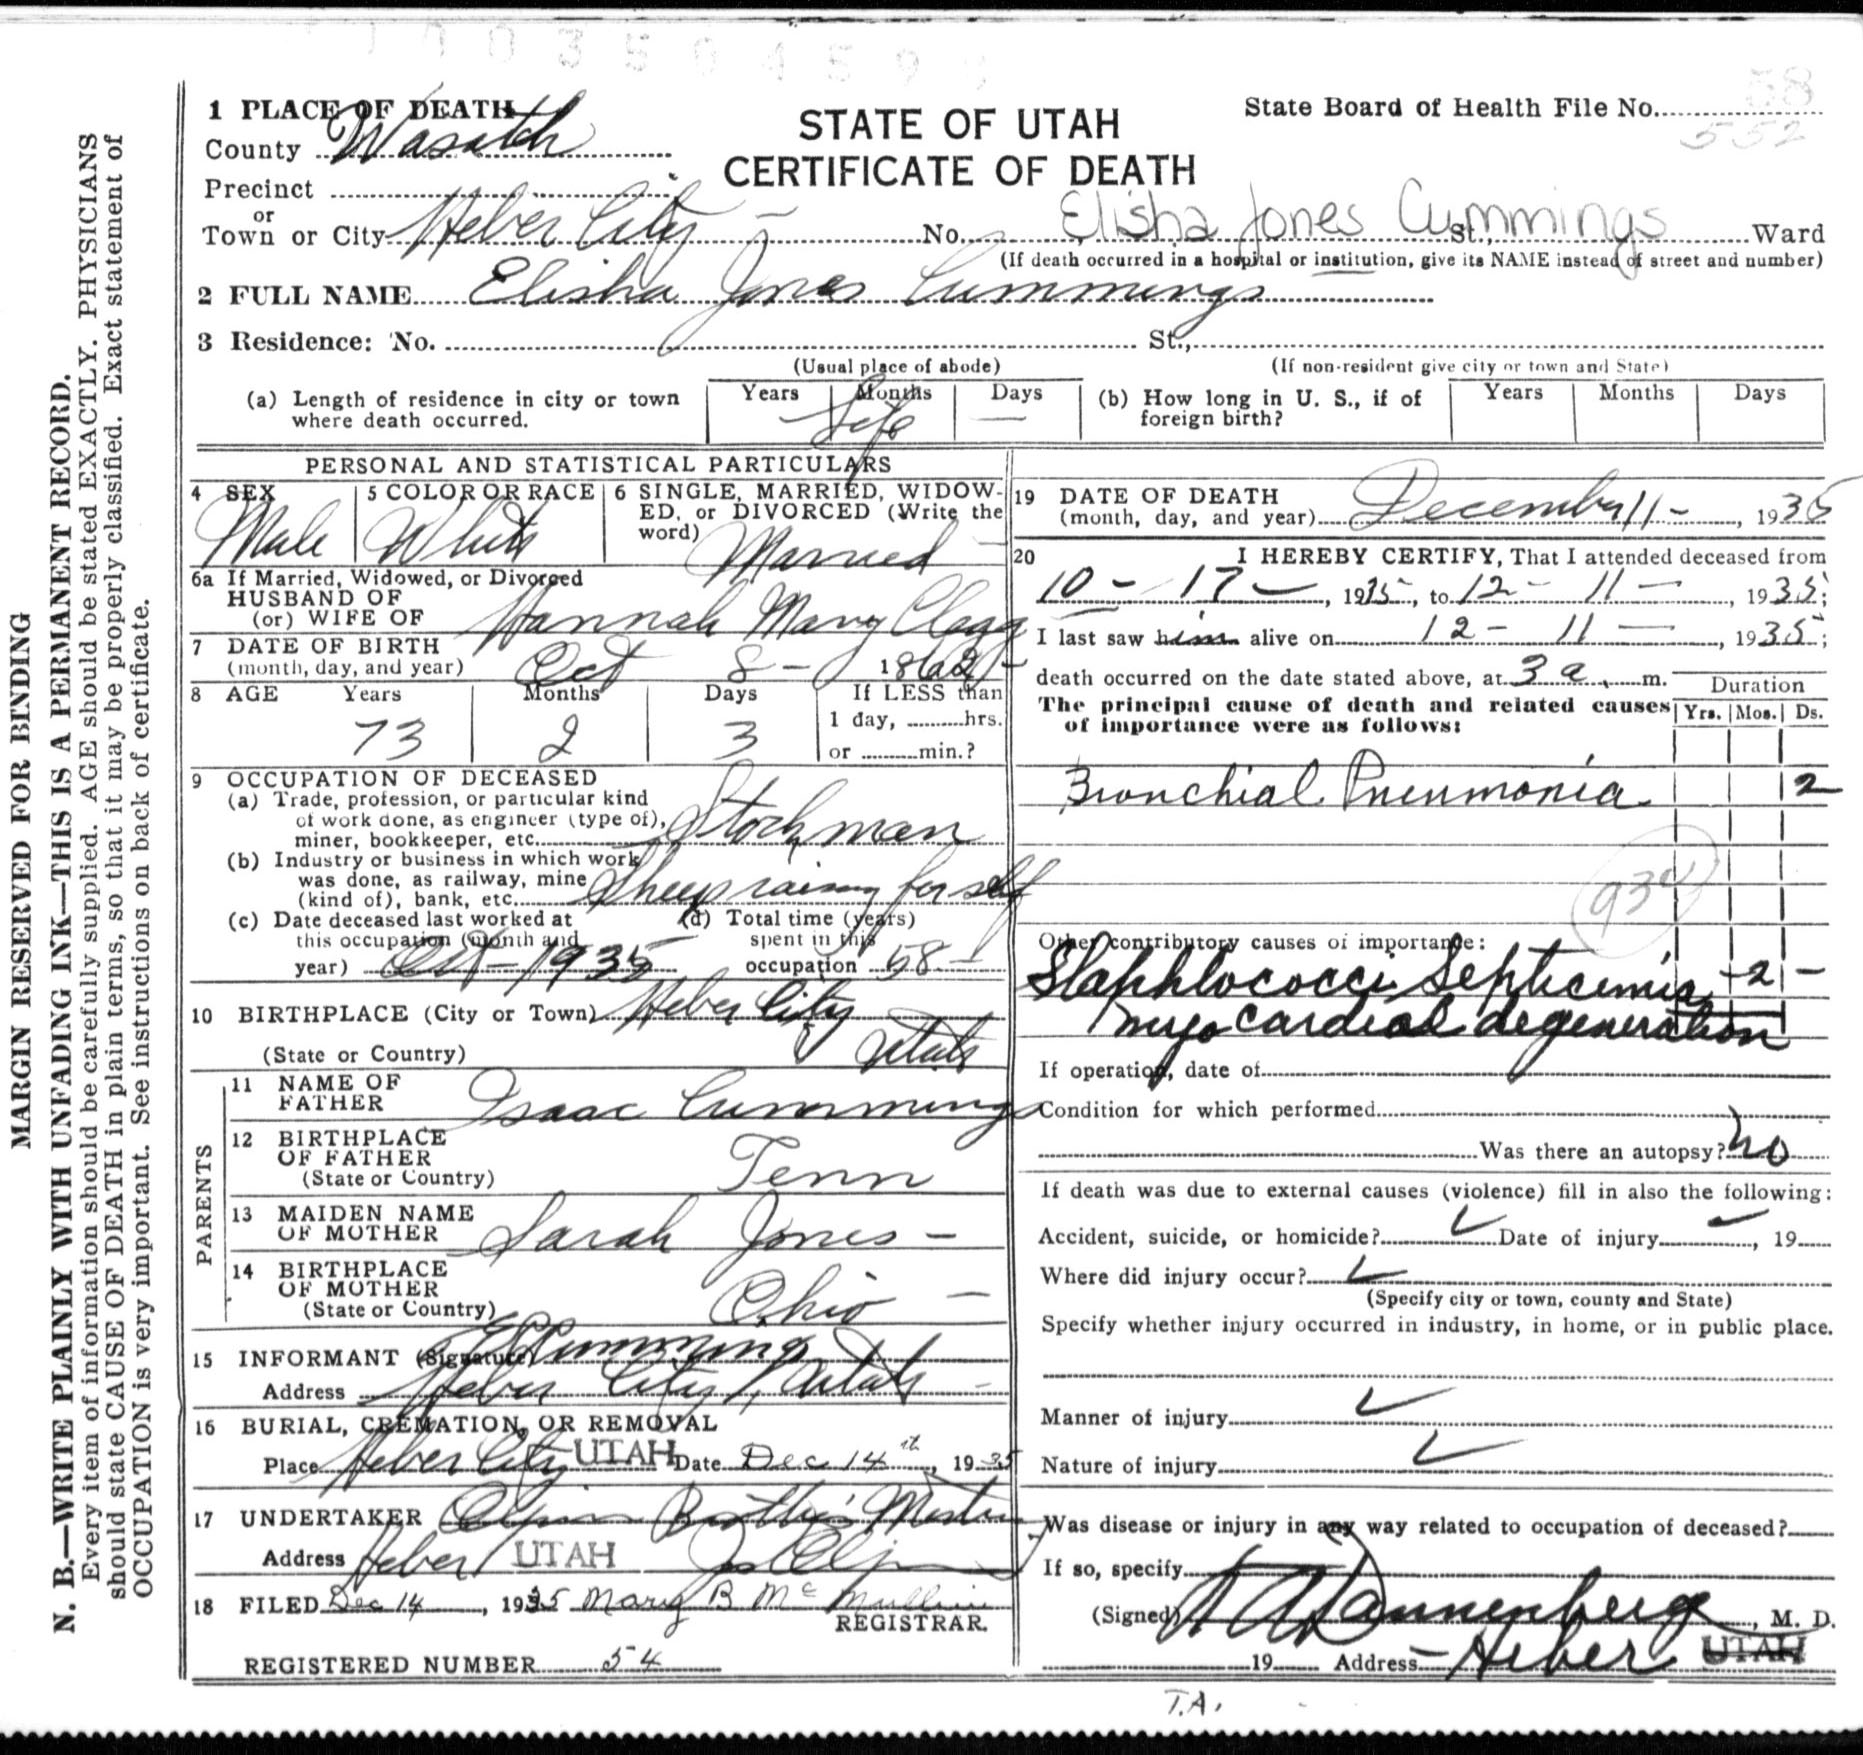 1 PLACE OF DEATH
County Wasatch
Precinct
or
Town or City Heber City No. St., Ward
Elisha Jones Cummings
STATE OF UTAH
CERTIFICATE OF DEATH
State Board of Health File No. 58
552
(If death occurred in a hospital or institution, give its NAME instead of street and number)
2 FULL NAME Elisha Jones Cummings
3 Residence: No. St.,
(Usual place of abode) (If non-resident give city or town and State)
(a) Length of residence in city or town where death occurred. Years Months Days Life —
(b) How long in U. S., if of foreign birth? Years Months Days
PERSONAL AND STATISTICAL PARTICULARS
4 SEX Male
5 COLOR OR RACE White
6 SINGLE, MARRIED, WIDOW-
ED, or DIVORCED (Write the
word) Married
6a If Married, Widowed, or Divorced
HUSBAND OF
(or) WIFE OF Hannah Mary Clegg
7 DATE OF BIRTH
(month, day, and year) Oct 8 - 1862
8 AGE Years Months Days If LESS than
73 2 3 1 day, hrs.
or min.?
9 OCCUPATION OF DECEASED
(a) Trade, profession, or particular kind
of work done, as engineer (type of),
miner, bookkeeper, etc. Stockman
(b) Industry or business in which work
was done, as railway, mine
(kind of), bank, etc. Sheep raising for self
(c) Date deceased last worked at
this occupation (month and
year) Oct - 1935
(d) Total time (years)
spent in this
occupation 58 -
10 BIRTHPLACE (City or Town) Heber City
(State or Country) Utah
PARENTS
11 NAME OF
FATHER Isaac Cummings
12 BIRTHPLACE
OF FATHER
(State or Country) Tenn
13 MAIDEN NAME
OF MOTHER Sarah Jones -
14 BIRTHPLACE
OF MOTHER
(State or Country) Ohio -
15 INFORMANT (Signature) Cummings
Address Heber City, Utah -
16 BURIAL, CREMATION, OR REMOVAL
Place Heber City UTAH Date Dec 14th, 1935
17 UNDERTAKER
Address Heber UTAH
18 FILED Dec 14, 1935 Mary B McMullin
REGISTRAR.
REGISTERED NUMBER 54
19 DATE OF DEATH
(month, day, and year) December 11 -, 1935
20 I HEREBY CERTIFY, That I attended deceased from
10 - 17 -, 1935, to 12 - 11 -, 1935;
I last saw him alive on 12 - 11 -, 1935;
death occurred on the date stated above, at 3 a. m.
The principal cause of death and related causes
of importance were as follows:
Duration
Yrs. Mos. Ds.
Bronchial Pneumonia 2
93
Other contributory causes of importance:
Staphlococci Septicemia - 2 -
myocardial degeneration
If operation, date of
Condition for which performed
Was there an autopsy? no
If death was due to external causes (violence) fill in also the following:
Accident, suicide, or homicide? ✓ Date of injury ✓, 19
Where did injury occur? ✓
(Specify city or town, county and State)
Specify whether injury occurred in industry, in home, or in public place.
Manner of injury ✓
Nature of injury ✓
Was disease or injury in any way related to occupation of deceased?
If so, specify
(Signed) Dannenberg, M. D.
19 Address - Heber UTAH
T.A.
MARGIN RESERVED FOR BINDING
N. B.—WRITE PLAINLY WITH UNFADING INK—THIS IS A PERMANENT RECORD.
Every item of information should be carefully supplied. AGE should be stated EXACTLY. PHYSICIANS
should state CAUSE OF DEATH in plain terms, so that it may be properly classified. Exact statement of
OCCUPATION is very important. See instructions on back of certificate.